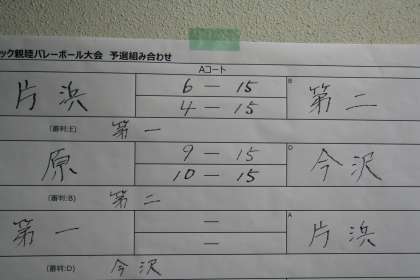 ック親睦バレーボール大会 予選組み合わせ
Aコート
片浜 6 — 15 B 第二
4 — 15
(審判:E) 第一
原 9 — 15 D 今沢
10 — 15
(審判:B) 第二
第一 — A 片浜
—
(審判:D) 今沢